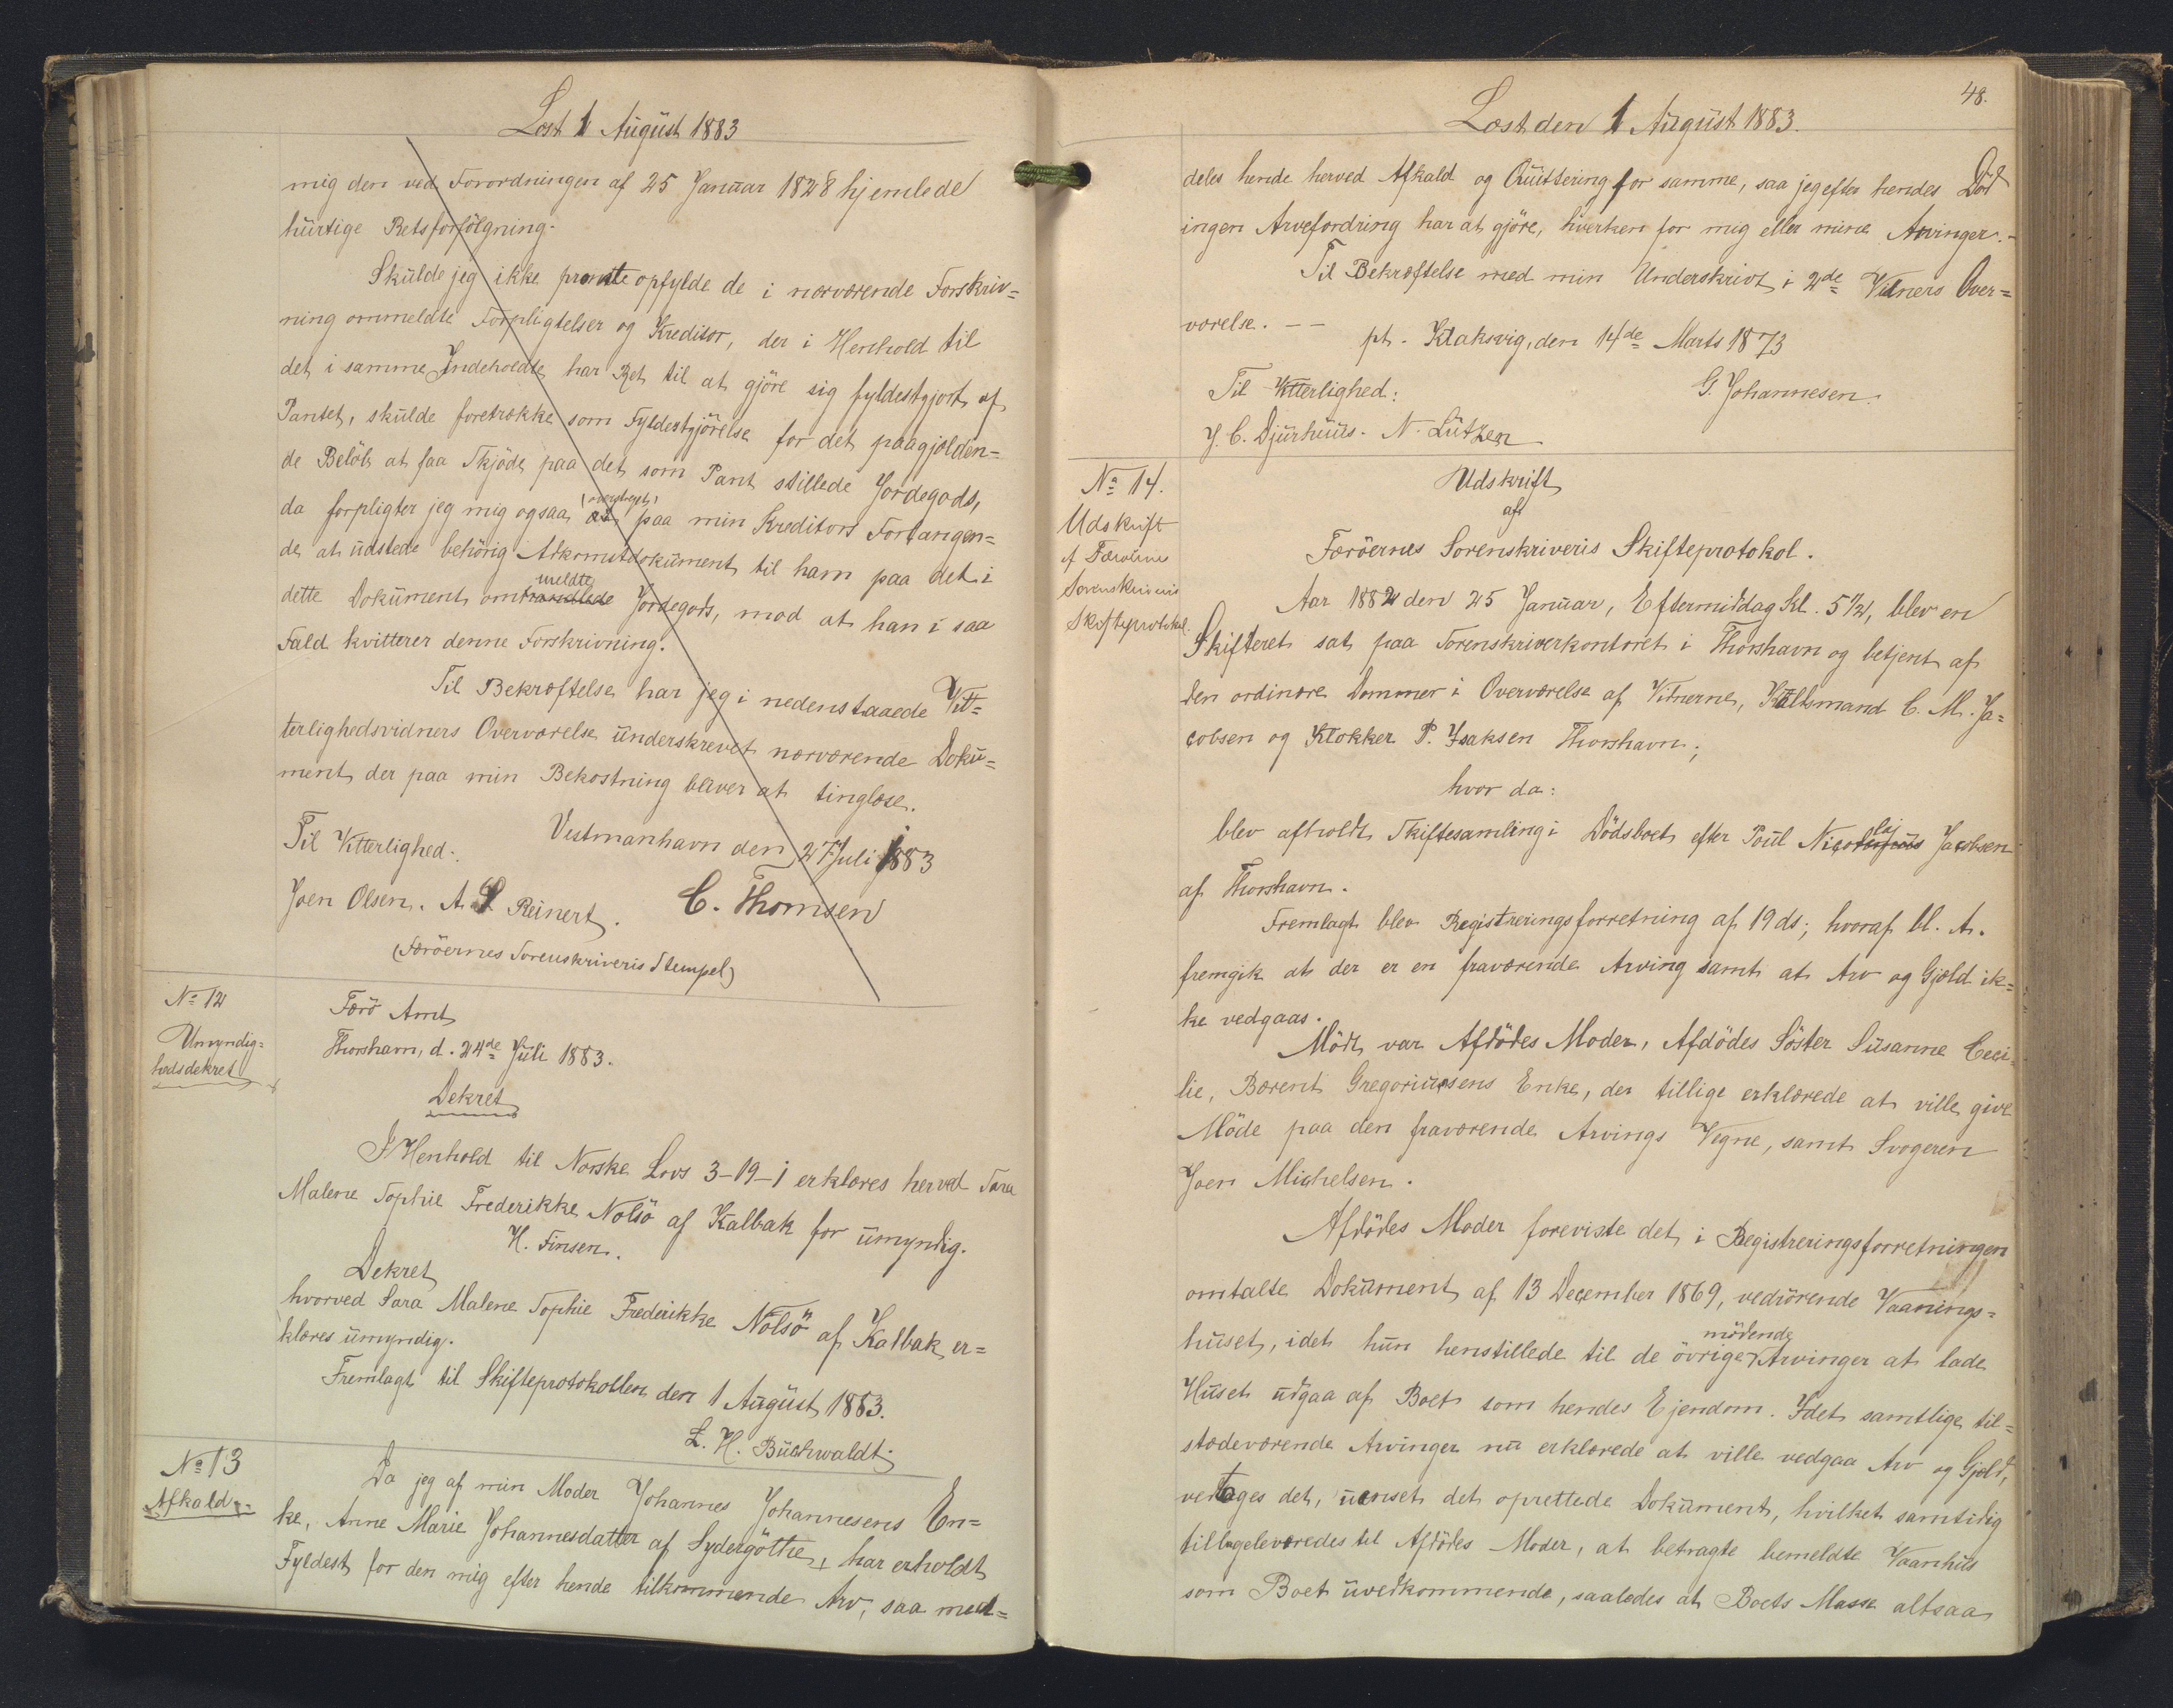 Læst 1 August 1883
mig den ved Forordningen af 25 Januar 1828 hjemlede
hurtige Retsforfölgning.
Skulde jeg ikke promte opfylde de i nærværende Forskriv=
ning ommeldte Forpligtelser og Kreditor, der i Henhold til
det i samme Indeholdte har Ret til at gjöre sig fyldestgjort af
Pantet, skulde foretrække som Fyldestgjörelse for det paagjælden=
de Belöb at faa Skjöde paa det som Pant stillede Jordegods,
da forpligter jeg mig ogsaa at paa min Kreditors Forlangen=
de at udstede behörig Adkomstdokument til ham paa det i
dette Dokument omhandlede meldte Jordegods, mod at han i saa
Fald kvitterer denne Forskrivning.
Til Bekræftelse har jeg i nedenstaaede Vit=
terlighedsvidners Overværelse underskrevet nærværende Doku=
ment, der paa min Bekostning bliver at tinglæse.
Vestmanhavn den 27 Juli 1883
Til Vitterlighed:
Joen Olsen. A. S Reinert. C. Thomsen
(Færöernes Sorenskriveris Stempel)
No 12
Umyndig=
hedsdekret
Færö Amt
Thorshavn, d. 24de Juli 1883.
Dekret
I Henhold til Norske Lovs 3-19-1 erklæres herved Sara
Malene Sophie Frederikke Nolsö af Kalbak for umyndig.
H. Finsen.
Dekret
hvorved Sara Malene Sophie Frederikke Nolsö af Kalbak er=
klæres umyndig.
Fremlagt til Skifteprotokollen den 1 August 1883.
L. H. Buchwaldt
No 13
Afkald
Da jeg af min Moder Johannes Johannesens En=
ke, Anne Marie Johannesdatter af Sydergöthe, har erholdt
Fyldest for den mig efter hende tilkommende Arv, saa med=
48.
Læst den 1 August 1883.
deles hende herved Afkald og Quittering for samme, saa jeg efter hendes Död
ingen Arvefordring har at gjöre, hverken for mig eller mine Arvinger.-
Til Bekræftelse med min Underskrivt i 2de Vitners Over=
værelse. --
pt. Klaksvig, den 14de Marts 1873
Til Vitterlighed: G. Johannesen.
J. C. Djurhuus. N. Lützen
No 14.
Udskrift
af Færöernes
Sorenskriveris
Skifteprotokol.
Udskrift
af
Færöernes Sorenskriveris Skifteprotokol.
Aar 1882 den 25 Januar, Eftermiddag Kl. 5 1/2, blev en
Skifteret sat paa Sorenskriverkontoret i Thorshavn og betjent af
den ordinære Dommer i Overværelse af Vitnerne, Kultsmand C. M. Ja=
cobsen og Klokker P. Isaksen Thorshavn;
hvor da:
blev afholdt Skiftesamling i Dödsboet efter Poul Nicolaj Jacobsen
af Thorshavn.
Fremlagt blev Registreringsforretning af 19 ds; hvoraf bl. A.
fremgik at der er en fraværende Arving samt at Arv og Gjæld ik=
ke vedgaas.
Mödt var Afdödes Moder, Afdödes Söster Susanne Ceci=
lie, Bærent Gregoriusens Enke, der tillige erklærede at ville give
Möde paa den fraværende Arvings Vegne, samt Svogeren
Joen Michelsen.
Afdödes Moder foreviste det i Registreringsforretningen
omtalte Dokument af 13 December 1869, vedrörende Vaanings=
huset, idet hun henstillede til de övrige mödende Arvinger at lade
Huset udgaa af Boet som hendes Ejendom. Idet samtlige til=
stedeværende Arvinger nu erklærede at ville vedgaa Arv og Gjæld,
vedtoges det, uanset det oprettede Dokument, hvilket samtidig
tilbageleveredes til Afdödes Moder, at betragte bemeldte Vaanhus
som Boet uvedkommende, saaledes at Boets Masse altsaa